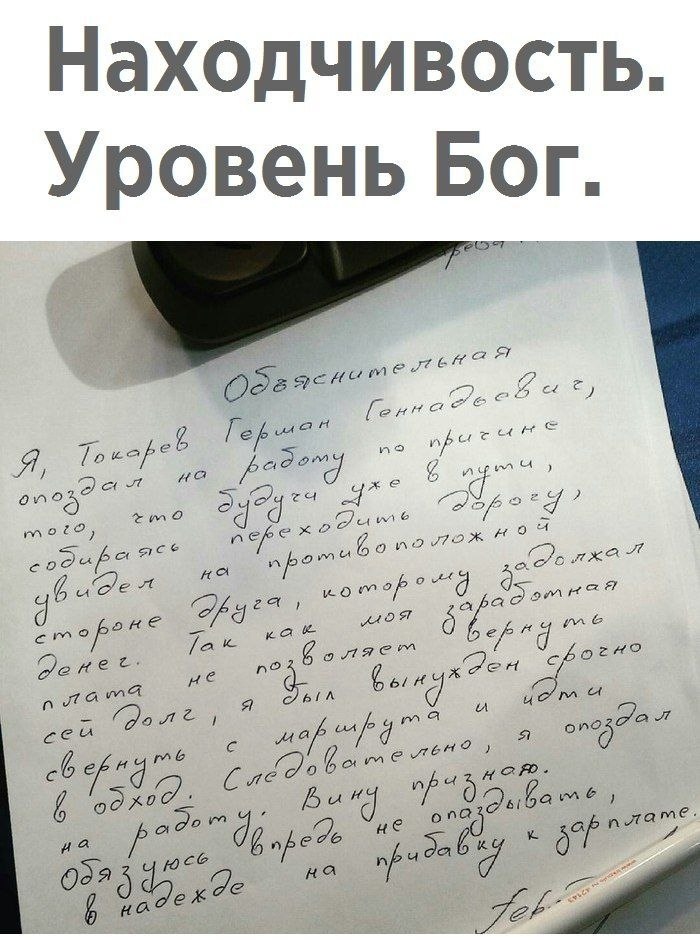 Находчивость.
Уровень Бог.
Объяснительная
Я, Токарев Герман Геннадьевич,
опоздал на работу по причине
того, что будучи уже в пути,
собираясь переходить дорогу,
увидел на противоположной
стороне друга, которому задолжал
денег. Так как моя заработная
плата не позволяет вернуть
сей долг, я был вынужден срочно
свернуть с маршрута и идти
в обход. Следовательно, я опоздал
на работу. Вину признаю.
Обязуюсь впредь не опаздывать,
в надежде на прибавку к зарплате.